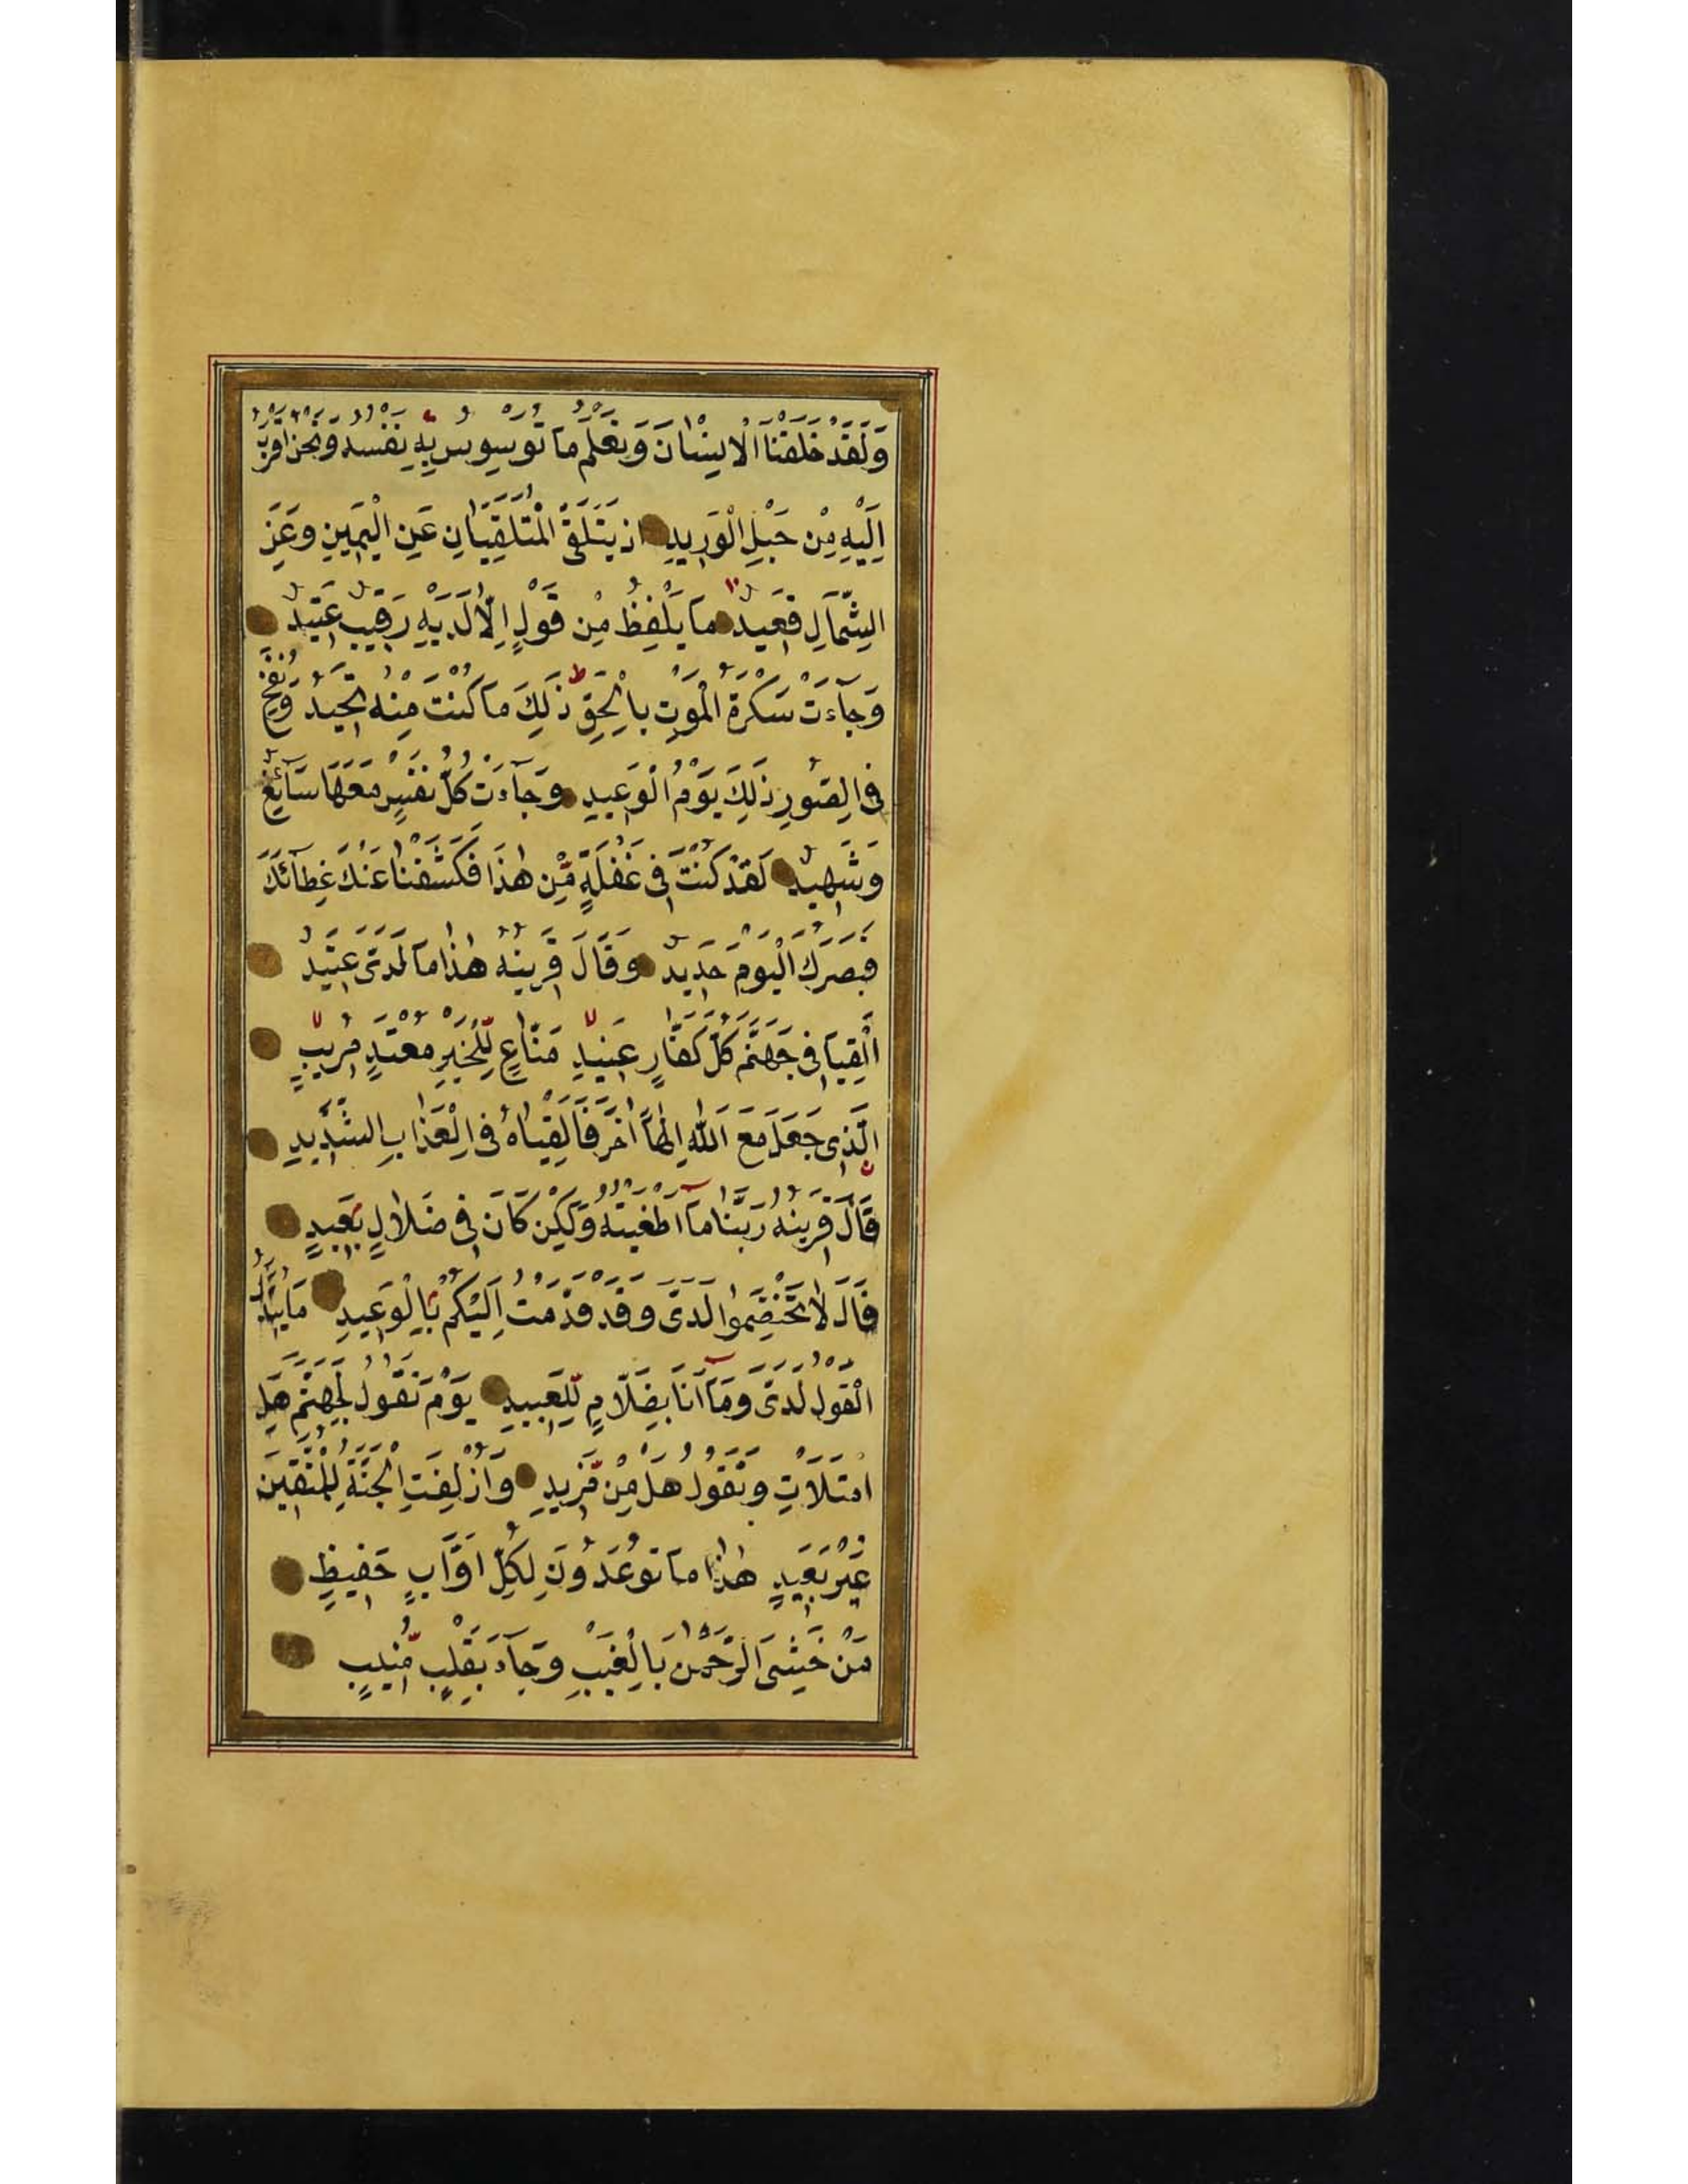 وَلَقَدْ خَلَقْنَا الْاِنْسَانَ وَنَعْلَمُ مَا تُوَسْوِسُ بِهِ نَفْسُهُ وَنَحْنُ اَقْرَبُ
اِلَيْهِ مِنْ حَبْلِ الْوَرِيدِ اِذْ يَتَلَقَّى الْمُتَلَقِّيَانِ عَنِ الْيَمِينِ وَعَنِ
الشِّمَالِ قَعِيدٌ مَا يَلْفِظُ مِنْ قَوْلٍ اِلَّا لَدَيْهِ رَقِيبٌ عَتِيدٌ
وَجَآءَتْ سَكْرَةُ الْمَوْتِ بِالْحَقِّ ذٰلِكَ مَا كُنْتَ مِنْهُ تَحِيدُ وَنُفِخَ
فِى الصُّورِ ذٰلِكَ يَوْمُ الْوَعِيدِ وَجَآءَتْ كُلُّ نَفْسٍ مَعَهَا سَآئِقٌ
وَشَهِيدٌ لَقَدْ كُنْتَ فِى غَفْلَةٍ مِنْ هٰذَا فَكَشَفْنَا عَنْكَ غِطَآئَكَ
فَبَصَرُكَ الْيَوْمَ حَدِيدٌ وَقَالَ قَرِينُهُ هٰذَا مَا لَدَىَّ عَتِيدٌ
اَلْقِيَا فِى جَهَنَّمَ كُلَّ كَفَّارٍ عَنِيدٍ مَنَّاعٍ لِلْخَيْرِ مُعْتَدٍ مُرِيبٍ
الَّذِى جَعَلَ مَعَ اللّٰهِ اِلٰهًا اٰخَرَ فَاَلْقِيَاهُ فِى الْعَذَابِ الشَّدِيدِ
قَالَ قَرِينُهُ رَبَّنَا مَآ اَطْغَيْتُهُ وَلٰكِنْ كَانَ فِى ضَلَالٍ بَعِيدٍ
قَالَ لَا تَخْتَصِمُوا لَدَىَّ وَقَدْ قَدَّمْتُ اِلَيْكُمْ بِالْوَعِيدِ مَا يُبَدَّلُ
الْقَوْلُ لَدَىَّ وَمَآ اَنَا بِضَلَّامٍ لِلْعَبِيدِ يَوْمَ نَقُولُ لِجَهَنَّمَ هَلِ
امْتَلَأْتِ وَتَقُولُ هَلْ مِنْ مَزِيدٍ وَاُزْلِفَتِ الْجَنَّةُ لِلْمُتَّقِينَ
غَيْرَ بَعِيدٍ هٰذَا مَا تُوعَدُونَ لِكُلِّ اَوَّابٍ حَفِيظٍ
مَنْ خَشِىَ الرَّحْمٰنَ بِالْغَيْبِ وَجَآءَ بِقَلْبٍ مُنِيبٍ